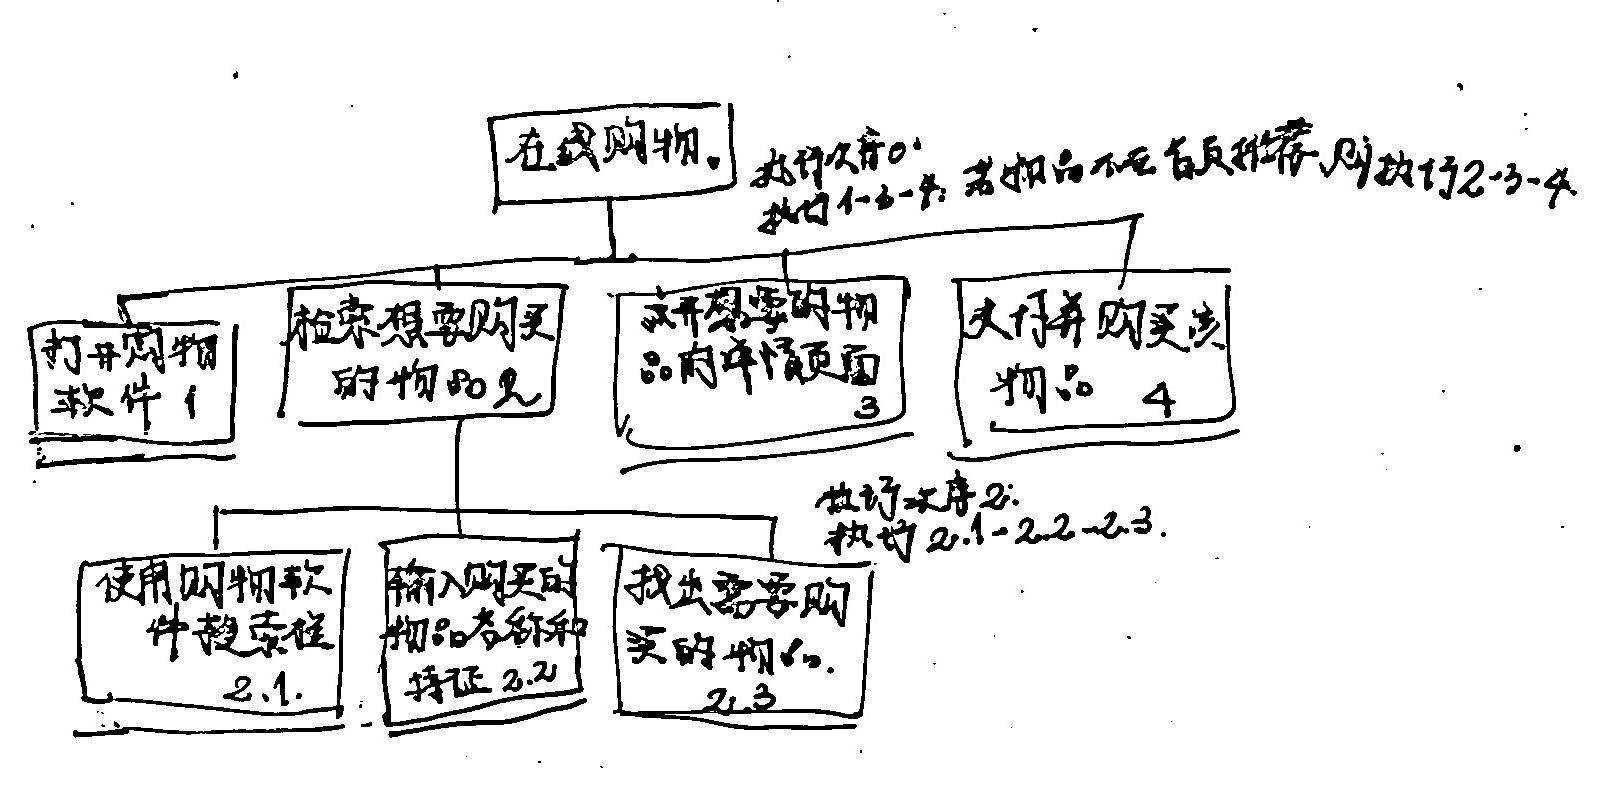 在线购物.
执行次序0:
执行1-3-4. 若物品不在首页推荐 则执行2-3-4.
打开购物
软件 1
检索想要购买
的物品 2
点开想要的物
品的详情页面
3
支付并购买该
物品 4
执行次序2:
执行 2.1-2.2-2.3.
使用购物软
件搜索栏
2.1.
输入购买的
物品名称和
特征 2.2
找出需要购
买的物品.
2.3